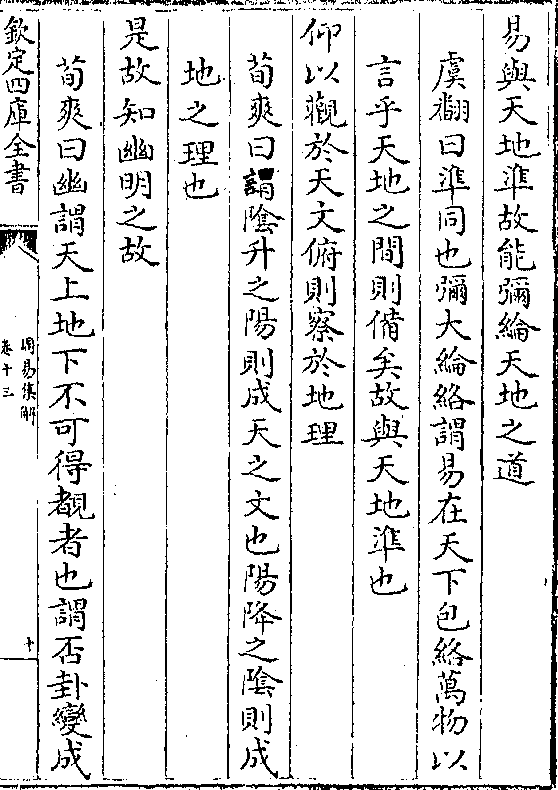 易與天地準故能彌綸天地之道
虞翻曰準同也彌大綸絡謂易在天下包絡萬物以
言乎天地之間則備矣故與天地準也
仰以觀於天文俯則察於地理
荀爽曰謂陰升之陽則成天之文也陽降之陰則成
地之理也
是故知幽明之故
荀爽曰幽謂天上地下不可得覩者也謂否卦變成
欽定四庫全書
周易集解
卷十三
十